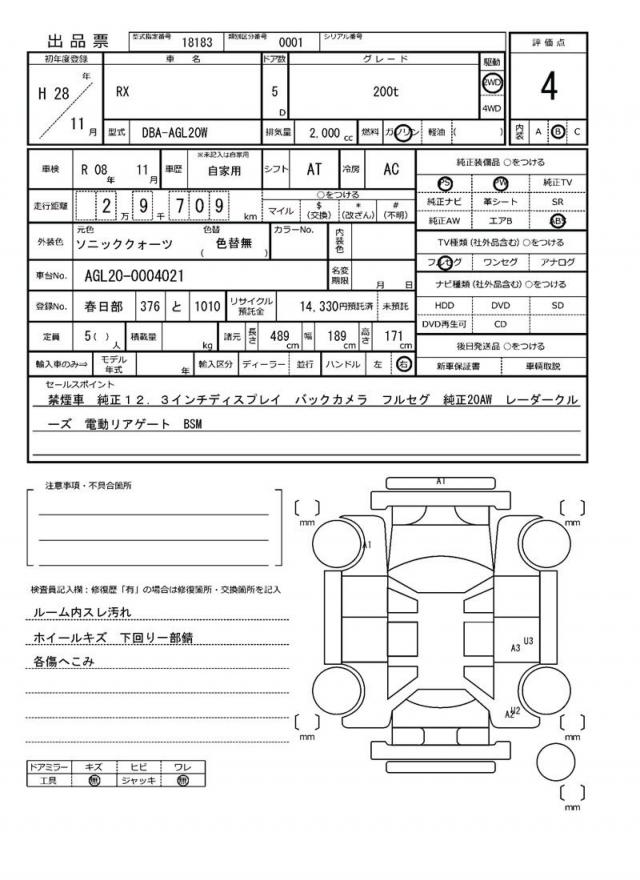 出品票 型式指定番号 18183 類別区分番号 0001 シリアル番号
初年度登録 車名 ドア数 グレード 駆動 評価点
H 28 年 11 月 RX 5 D 200t 2WD 4WD 4
型式 DBA-AGL20W 排気量 2,000 cc 燃料 ガソリン 軽油 ( ) 内装 A B C
車検 R 08 年 11 月 車歴 ※未記入は自家用 自家用 シフト AT 冷房 AC
走行距離 2 万 9 千 7 0 9 km ○をつける マイル $ (交換) * (改ざん) # (不明)
外装色 元色 ソニッククォーツ 色替 ( 色替無 ) カラーNo. 内装色
車台No. AGL20-0004021 名変期限 月 日
登録No. 春日部 376 と 1010 リサイクル預託金 14,330円預託済 未預託
定員 5( ) 人 積載量 kg 諸元 長さ 489 cm 幅 189 cm 高さ 171 cm
輸入車のみ⇒ モデル年式 年 輸入区分 ディーラー 並行 ハンドル 左 右
純正装備品 ○をつける
PS PW 純正TV
純正ナビ 革シート SR
純正AW エアB ABS
TV種類(社外品含む)○をつける
フルセグ ワンセグ アナログ
ナビ種類(社外品含む)○をつける
HDD DVD SD
DVD再生可 CD
後日発送品 ○をつける
新車保証書 車輌取説
セールスポイント
禁煙車 純正12.3インチディスプレイ バックカメラ フルセグ 純正20AW レーダークル
ーズ 電動リアゲート BSM
注意事項・不具合箇所
検査員記入欄：修復歴「有」の場合は修復箇所・交換箇所を記入
ルーム内スレ汚れ
ホイールキズ 下回り一部錆
各傷へこみ
ドアミラー キズ ヒビ ワレ
工具 無 ジャッキ 無
A1
mm mm
A1
A3 U3
A2 U2
mm mm
mm